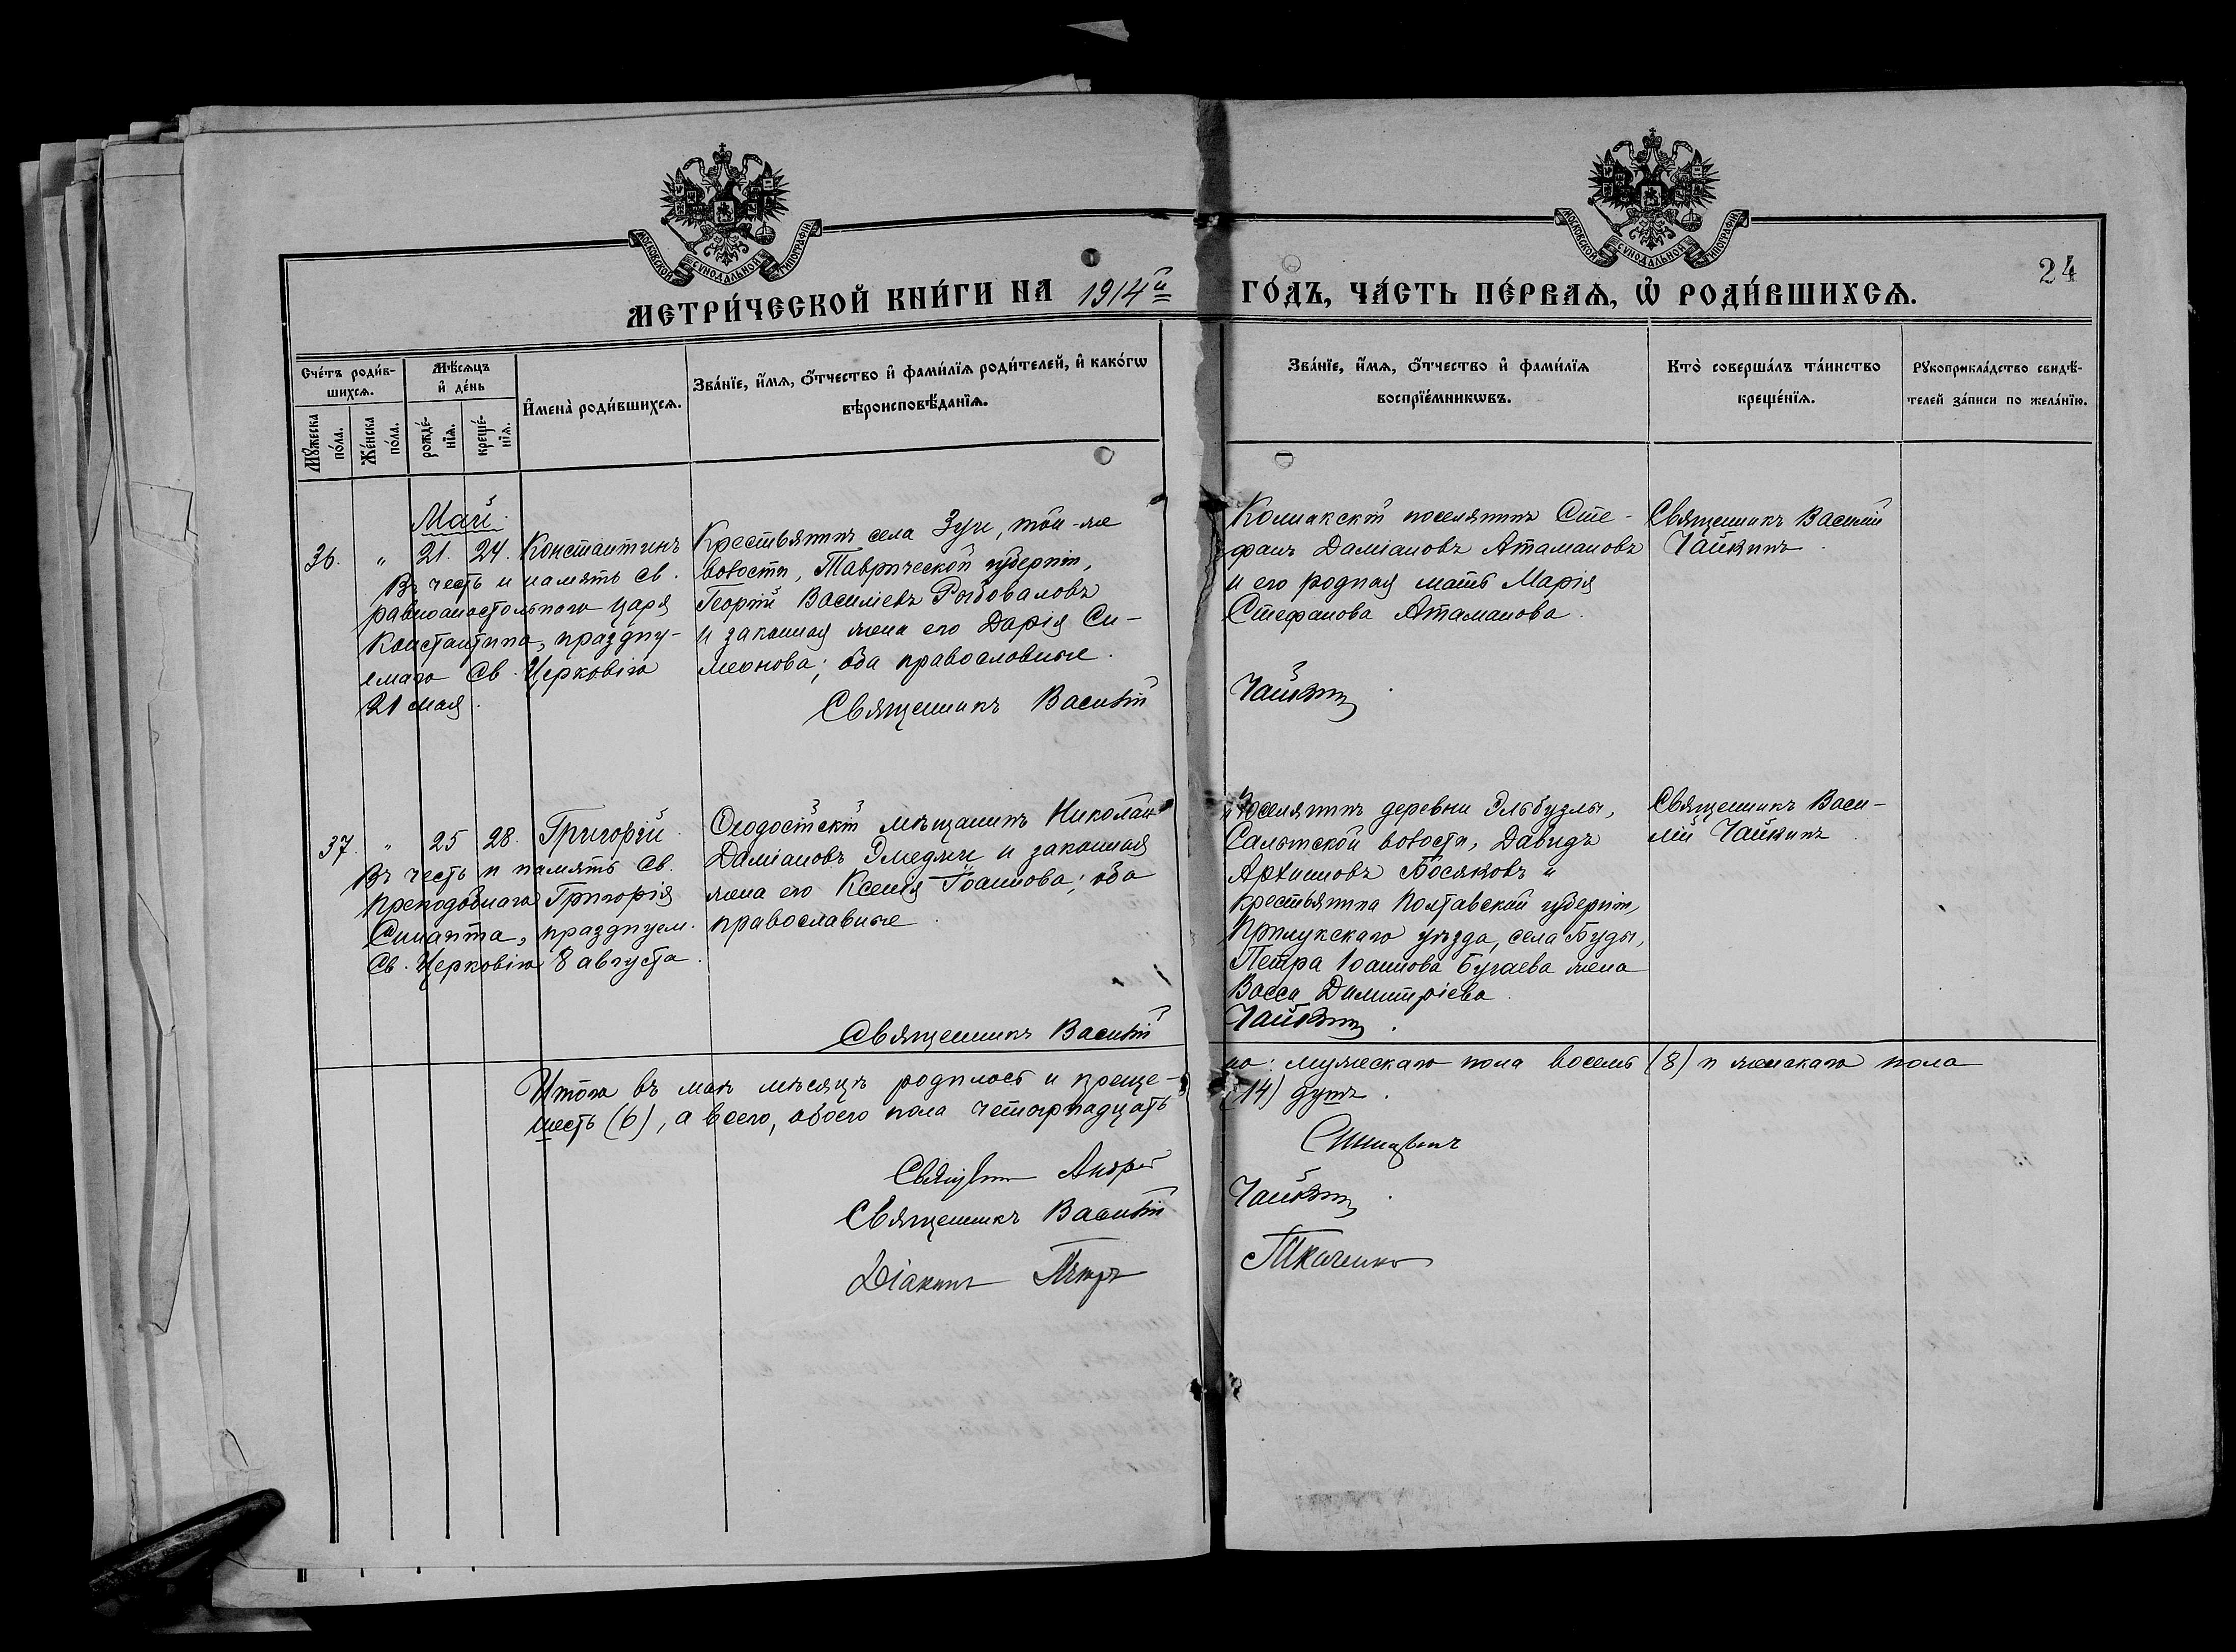 МОСКОВСКОЙ СѴНОДАЛЬНОЙ ТИПОГРАФІИ
МОСКОВСКОЙ СѴНОДАЛЬНОЙ ТИПОГРАФІИ
24
МЕТРИ́ЧЕСКОЙ КНИ́ГИ НА 1914й ГО́ДЪ, ЧА́СТЬ ПЕ́РВАѦ, Ѡ҆ РОДИ́ВШИХСѦ.
Сче́тъ роди́в-
шихсѧ.
Мꙋ́жеска
по́ла.
Же́нска
по́ла.
Мѣ́сѧцъ
и҆ де́нь
рожде́-
нїѧ.
креще́-
нїѧ.
И҆мена̀ роди́вшихсѧ.
Зва́нїе, и҆́мѧ, ѻ҆́тчество и҆ фами́лїѧ роди́телей, и҆ како́гѡ
вѣроисповѣ́данїѧ.
Зва́нїе, и҆́мѧ, ѻ҆́тчество и҆ фами́лїѧ
воспрїе́мникѡвъ.
Кто̀ соверша́лъ та́инство
креще́нїѧ.
Рꙋкоприкла́дство свидѣ́-
телей за́писи по жела́нїю.
Май.
36. " 21. 24. Константинъ
Въ честь и память св.
равноапостольнаго царя
Константина, праздну-
емаго Св. Церковію
21 мая.
Крестьянинъ села Зуи, той-же
волости, Таврической губерніи,
Георгій Василіевъ Рыбоваловъ
и законная жена его Дарія Си-
меонова; оба православные.
Священникъ Василій
поселянинъ Сте-
фанъ Даміановъ Атамановъ
и его родная мать Марія
Стефанова Атаманова.
Чайкинъ.
Священникъ Василій
Чайкинъ.
37. " 25 28. Григорій.
Въ честь и память Св.
Преподобнаго Григорія
Синаита, празднуем.
Св. Церковію 8 августа.
Ѳеодосійскій мѣщанинъ Николай
Даміановъ Эмеджи и законная
жена его Ксенія Іоаннова; оба
православные.
Священникъ Василій
Поселянинъ деревни Эльбузлы,
Салынской волости, Давидъ
Архиповъ Босяковъ и
крестьянина Полтавской губерніи,
Прилукскаго уѣзда, села Буды,
Петра Іоаннова Бугаева жена
Васса Димитріева.
Чайкинъ.
Священникъ Васи-
лій Чайкинъ.
Итого въ маѣ мѣсяцѣ родилось и креще-
но: мужескаго пола восемь (8) и женскаго пола
шесть (6), а всего, обоего пола четырнадцать
(14) душъ.
Священникъ Андрей
Синицынъ
Священникъ Василій
Чайкинъ.
Діаконъ Петръ
Ткаченко